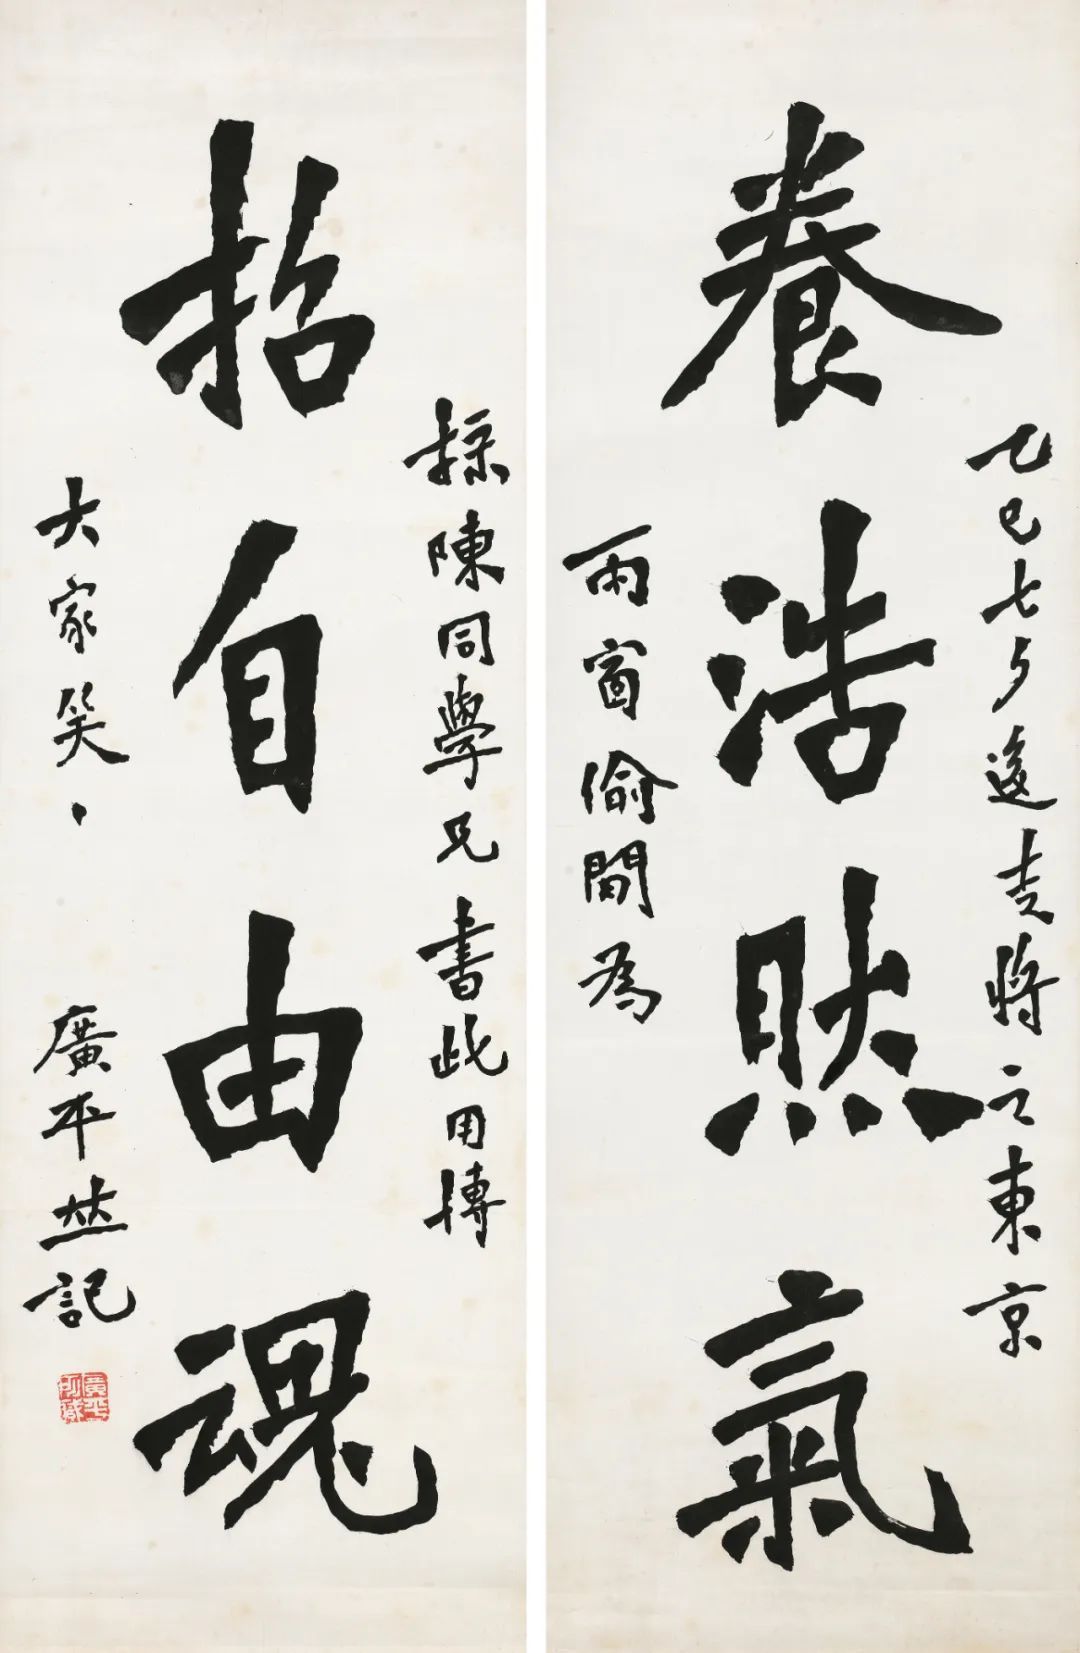 乙巳七夕遠走將之東京
養浩然氣
雨窗偷閒為
陳同學兄書此用博
招自由魂
大家笑〻
廣平並記